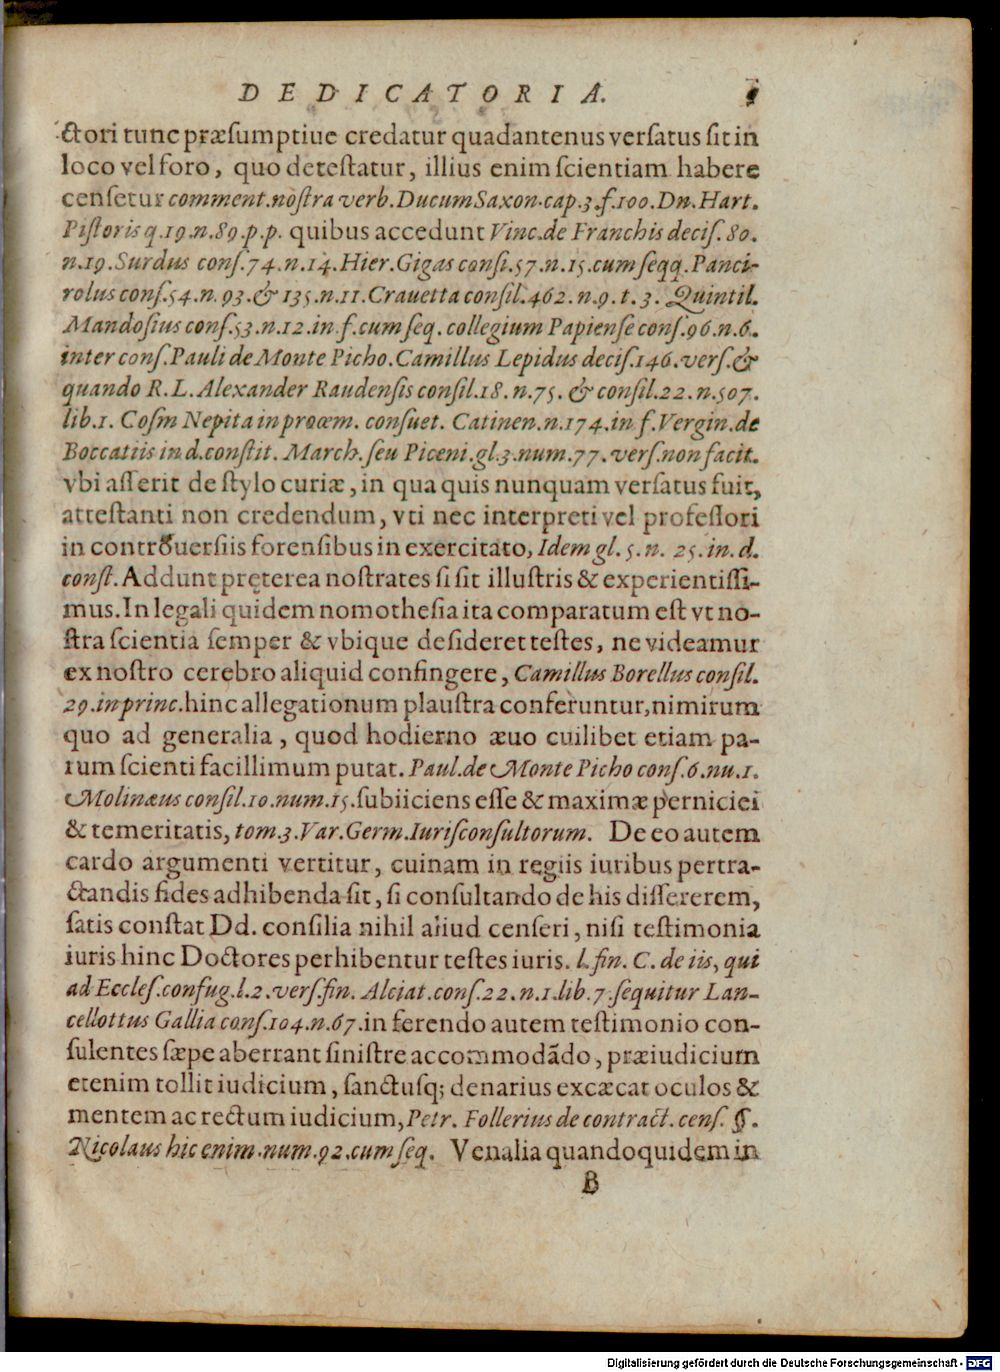 DEDICATORIA.
ctori tunc præsumptiue credatur quadantenus versatus sit in
loco vel foro, quo detestatur, illius enim scientiam habere
censetur comment. nostra verb. Ducum Saxon. cap. 3. f. 100. Dn. Hart.
Pistoris q. 19. n. 89. p. p. quibus accedunt Vinc. de Franchis decis. 80.
n. 19. Surdus cons. 74. n. 14. Hier. Gigas consi. 57. n. 15. cum seqq. Panci-
rolus cons. 54. n. 93. & 135. n. 11. Crauetta consil. 462. n. 9. t. 3. Quintil.
Mandosius cons. 53. n. 12. in f. cum seq. collegium Papiense cons. 96. n. 6.
inter cons. Pauli de Monte Picho. Camillus Lepidus decis. 146. vers. &
quando R. L. Alexander Raudensis consil. 18. n. 75. & consil. 22. n. 507.
lib. 1. Cosm Nepita in proœm. consuet. Catinen. n. 174. in f. Vergin. de
Boccatiis in d. constit. March. seu Piceni. gl. 3. num. 77. vers. non facit.
vbi asserit de stylo curiæ, in qua quis nunquam versatus fuit,
attestanti non credendum, vti nec interpreti vel professori
in controuersiis forensibus in exercitato, Idem gl. 5. n. 25. in. d.
const. Addunt pręterea nostrates si sit illustris & experientissi-
mus. In legali quidem nomothesia ita comparatum est vt no-
stra scientia semper & vbique desideret testes, ne videamur
ex nostro cerebro aliquid confingere, Camillus Borellus consil.
29. in princ. hinc allegationum plaustra conferuntur, nimirum
quo ad generalia, quod hodierno æuo cuilibet etiam pa-
rum scienti facillimum putat. Paul. de Monte Picho cons. 6. nu. 1.
Molinæus consil. 10. num. 15. subiiciens esse & maximæ perniciei
& temeritatis, tom. 3. Var. Germ. Iurisconsultorum. De eo autem
cardo argumenti vertitur, cuinam in regiis iuribus pertra-
ctandis fides adhibenda sit, si consultando de his dissererem,
satis constat Dd. consilia nihil aliud censeri, nisi testimonia
iuris hinc Doctores perhibentur testes iuris. l. fin. C. de iis, qui
ad Eccles. confug. l. 2. vers. fin. Alciat. cons. 22. n. 1. lib. 7. sequitur Lan-
cellottus Gallia cons. 104. n. 67. in ferendo autem testimonio con-
sulentes sæpe aberrant sinistre accommodādo, præiudicium
etenim tollit iudicium, sanctusq; denarius excæcat oculos &
mentem ac rectum iudicium, Petr. Follerius de contract. cens. §.
Nicolaus hic enim. num. 92. cum seq. Venalia quandoquidem in
B
Digitalisierung gefördert durch die Deutsche Forschungsgemeinschaft - DFG